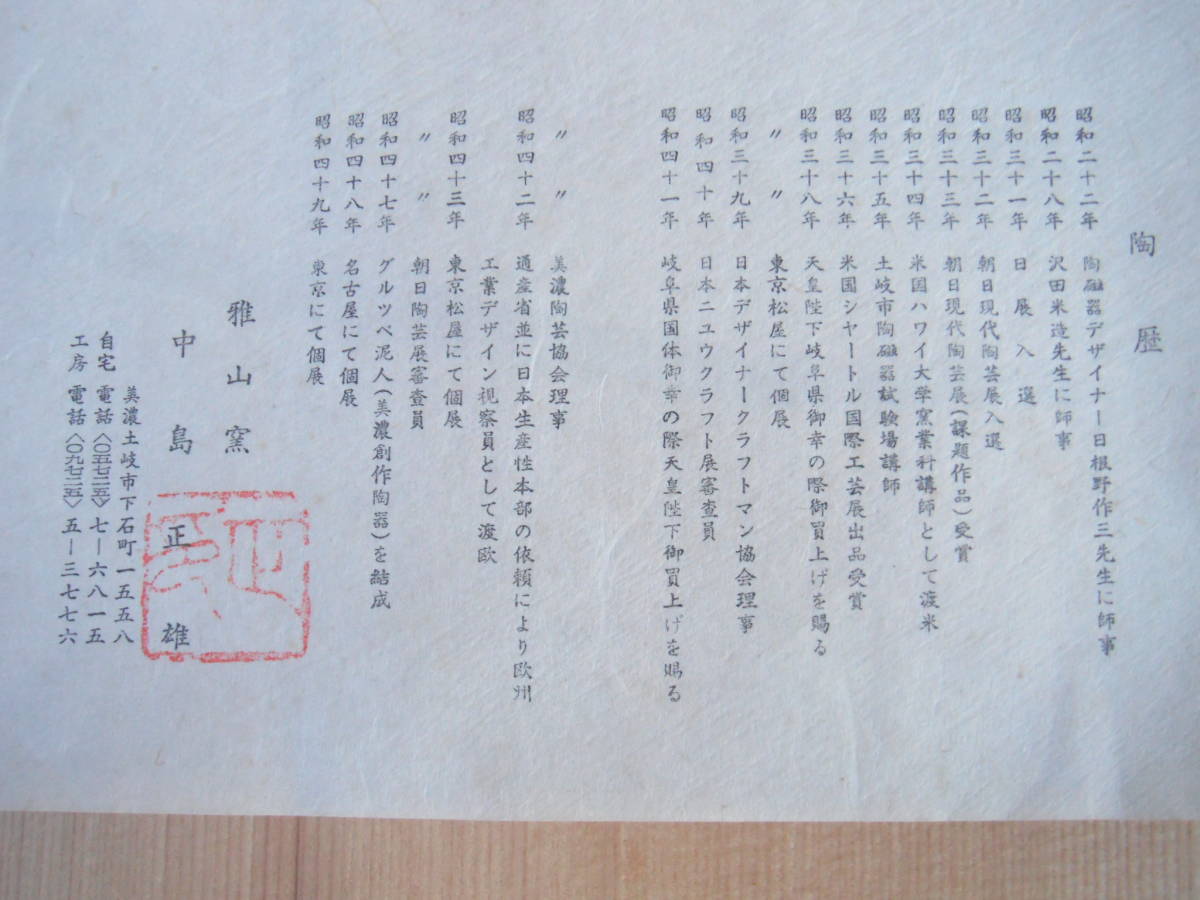 陶歴
昭和二十二年 陶磁器デザイナー日根野作三先生に師事
昭和二十八年 沢田米造先生に師事
昭和三十一年 日展入選
昭和三十二年 朝日現代陶芸展入選
昭和三十三年 朝日現代陶芸展(課題作品)受賞
昭和三十四年 米国ハワイ大学窯業科講師として渡米
昭和三十五年 土岐市陶磁器試験場講師
昭和三十六年 米国シヤートル国際工芸展出品受賞
昭和三十八年 天皇陛下岐阜県御幸の際御買上げを賜る
〃 〃 東京松屋にて個展
昭和三十九年 日本デザイナークラフトマン協会理事
昭和四十年 日本ニユウクラフト展審査員
昭和四十一年 岐阜県国体御幸の際天皇陛下御買上げを賜る
〃 〃 美濃陶芸協会理事
昭和四十二年 通産省並に日本生産性本部の依頼により欧州
工業デザイン視察員として渡欧
昭和四十三年 東京松屋にて個展
〃 〃 朝日陶芸展審査員
昭和四十七年 グルツペ泥人(美濃創作陶器)を結成
昭和四十八年 名古屋にて個展
昭和四十九年 東京にて個展
雅山窯
中島正雄
美濃土岐市下石町一五五八
自宅 電話〈〇五七二五〉七-六八一五
工房 電話〈〇九七二五〉五-三七七六